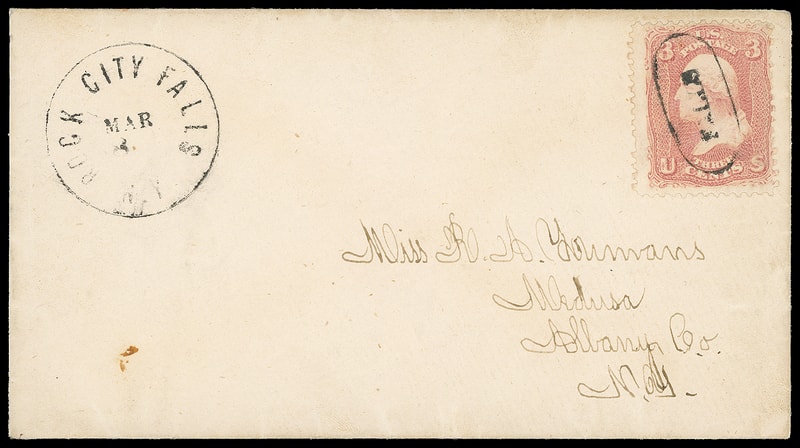 ROCK CITY FALLS
MAR
N.Y.
3 U.S. 3
POSTAGE
PAID
U THREE S
CENTS
Miss R. A. Youmans
Medusa
Albany Co.
N.Y.